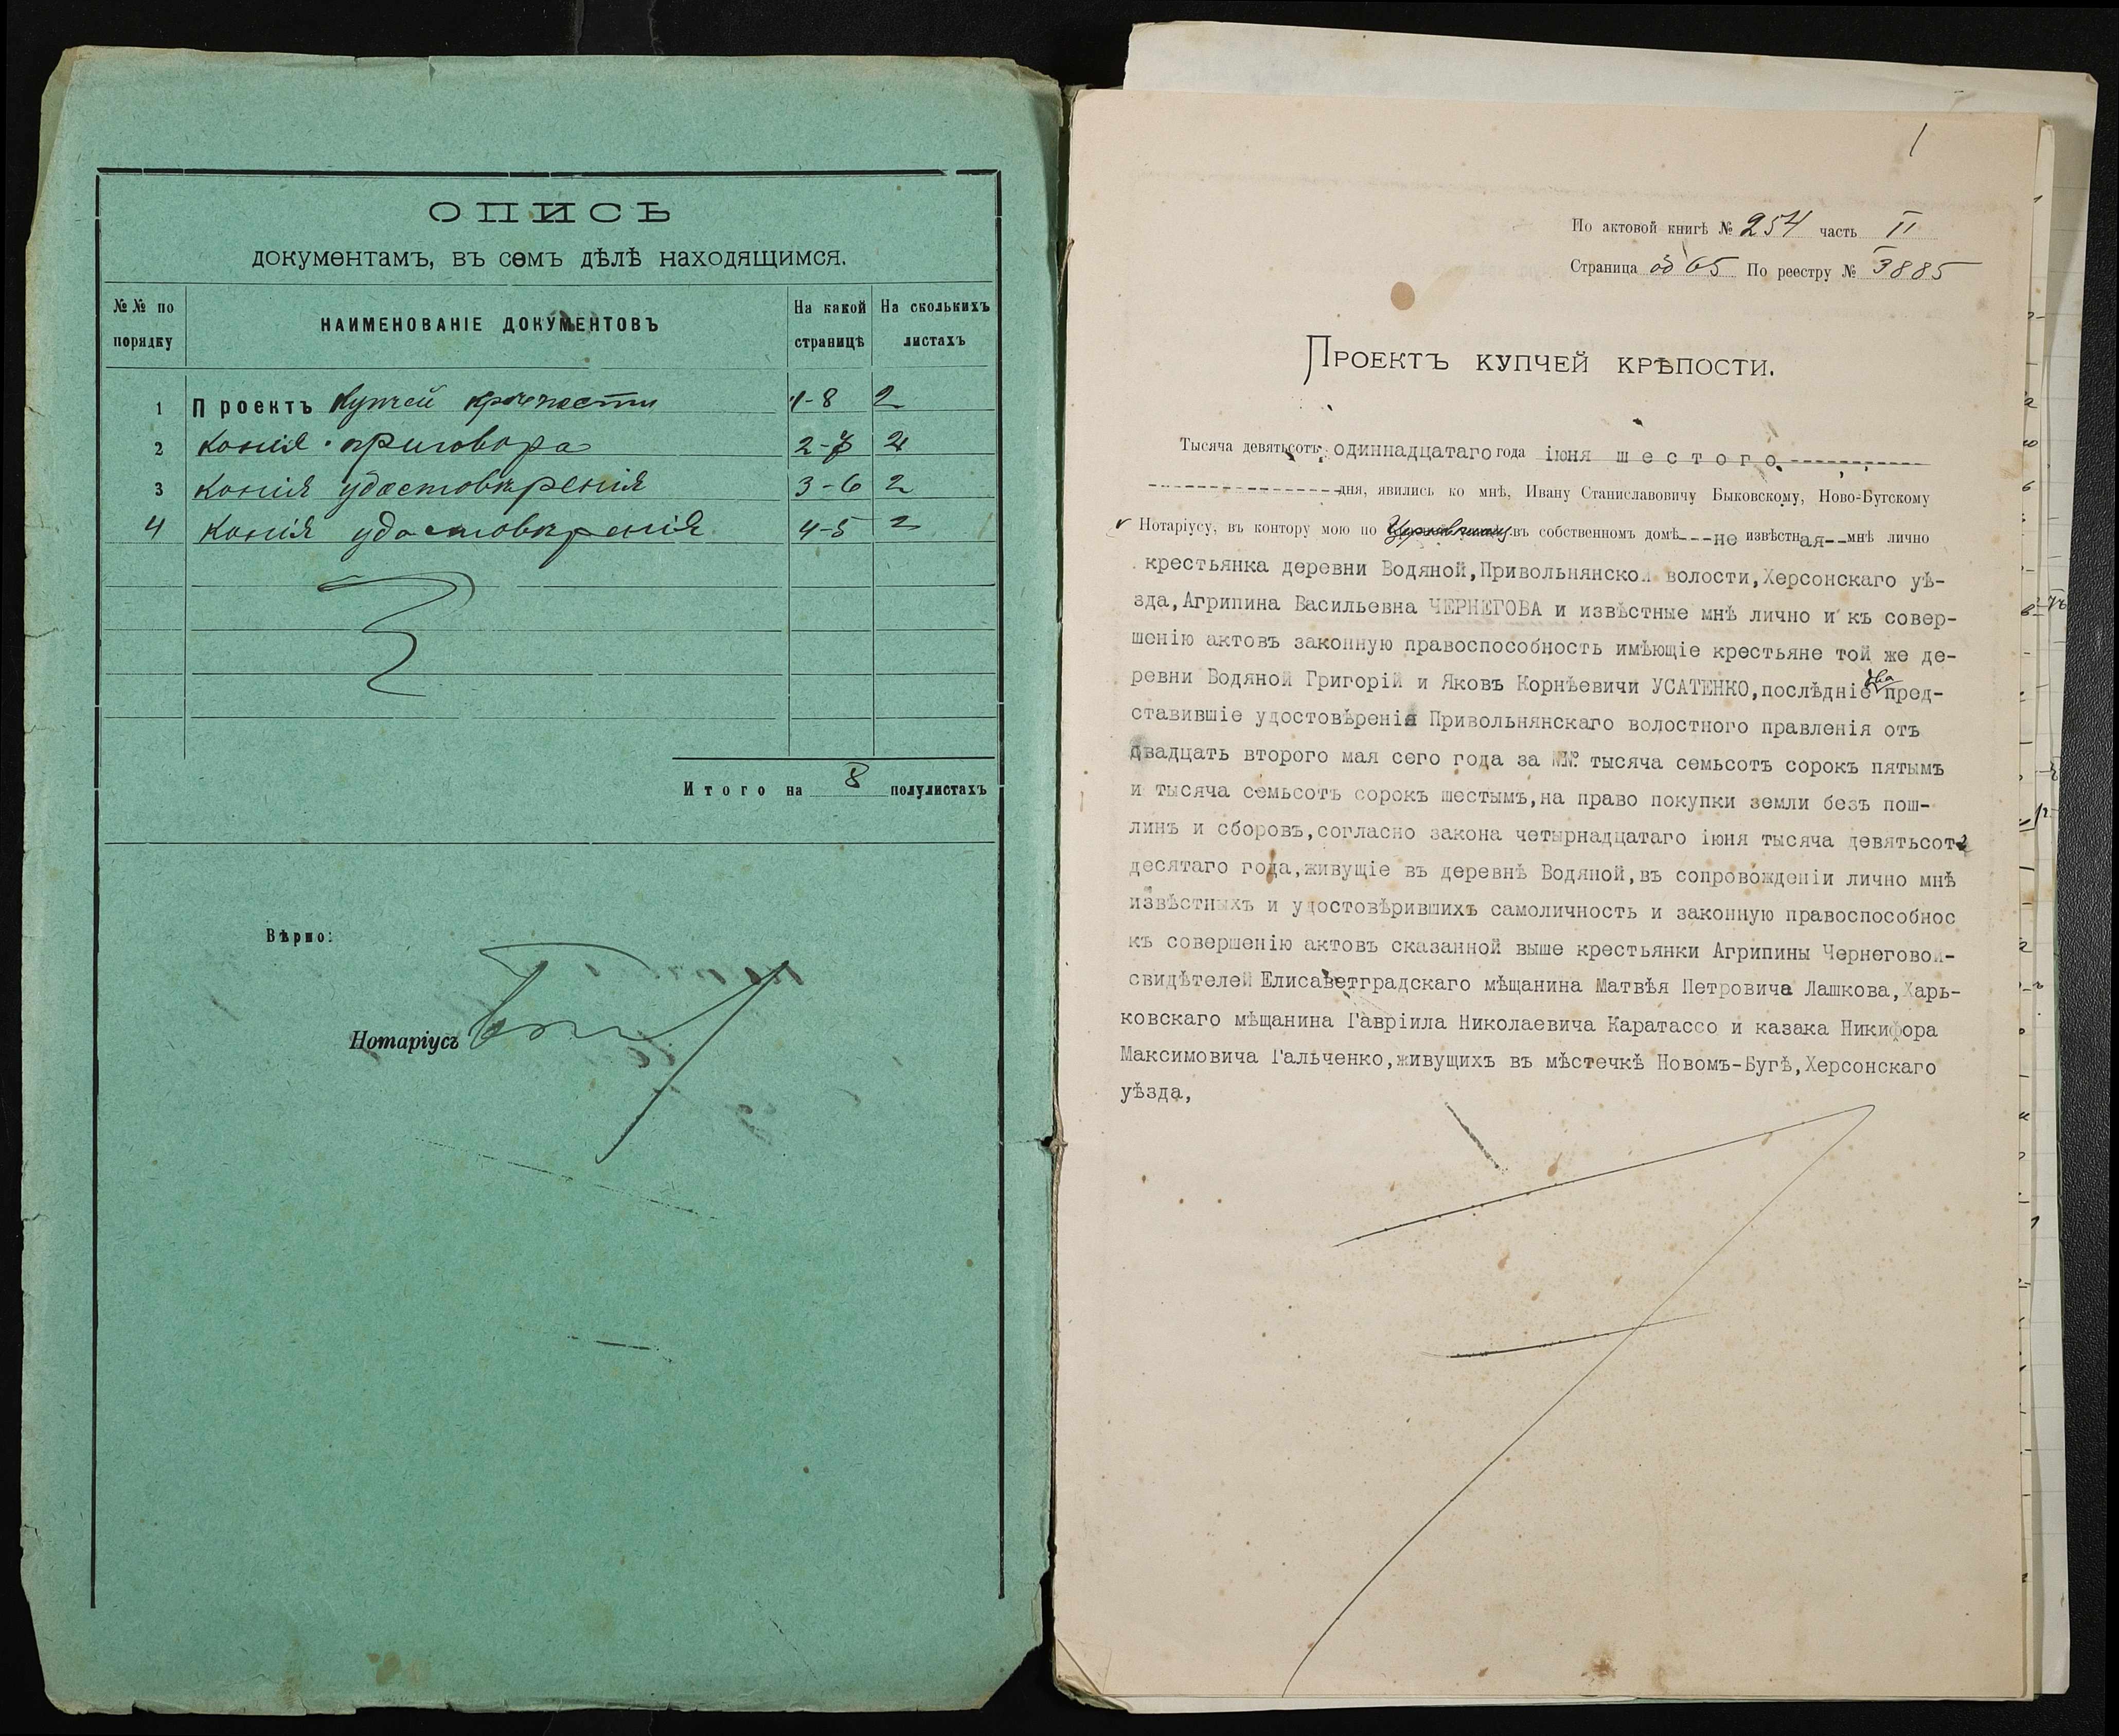 ОПИСЬ
документамъ, въ семъ дѣлѣ находящимся.
№№ по порядку
НАИМЕНОВАНІЕ ДОКУМЕНТОВЪ
На какой страницѣ
На сколькихъ листахъ
1 Проектъ купчей крѣпости 1-8 2
2 Копія приговора 2-7 2
3 Копія удостовѣренія 3-6 2
4 Копія удостовѣренія 4-5 2
Итого на 8 полулистахъ
Вѣрно:
Нотаріусъ
1
По актовой книгѣ № 254 часть II
Страница 65 По реестру № 3885
Проектъ купчей крѣпости.
Тысяча девятьсотъ одиннадцатаго года іюня шестого
дня, явились ко мнѣ, Ивану Станиславовичу Быковскому, Ново-Бугскому
Нотаріусу, въ контору мою по въ собственномъ домѣ---не извѣстная--мнѣ лично
крестьянка деревни Водяной,Привольнянской волости,Херсонскаго уѣ-
зда,Агрипина Васильевна ЧЕРНЕГОВА и извѣстные мнѣ лично и къ совер-
шенію актовъ законную правоспособность имѣющіе крестьяне той же де-
ревни Водяной Григорій и Яковъ Корнѣевичи УСАТЕНКО,послѣдніе два пред-
ставившіе удостовѣренія Привольнянскаго волостного правленія отъ
двадцать второго мая сего года за №№ тысяча семьсотъ сорокъ пятымъ
и тысяча семьсотъ сорокъ шестымъ,на право покупки земли безъ пош-
линъ и сборовъ,согласно закона четырнадцатаго іюня тысяча девятьсотъ
десятаго года,живущіе въ деревнѣ Водяной,въ сопровожденіи лично мнѣ
извѣстныхъ и удостовѣрившихъ самоличность и законную правоспособнос
къ совершенію актовъ сказанной выше крестьянки Агрипины Чернеговой-
свидѣтелей Елисаветградскаго мѣщанина Матвѣя Петровича Лашкова,Харь-
ковскаго мѣщанина Гавріила Николаевича Каратассо и казака Никифора
Максимовича Гальченко,живущихъ въ мѣстечкѣ Новомъ-Бугѣ,Херсонскаго
уѣзда,